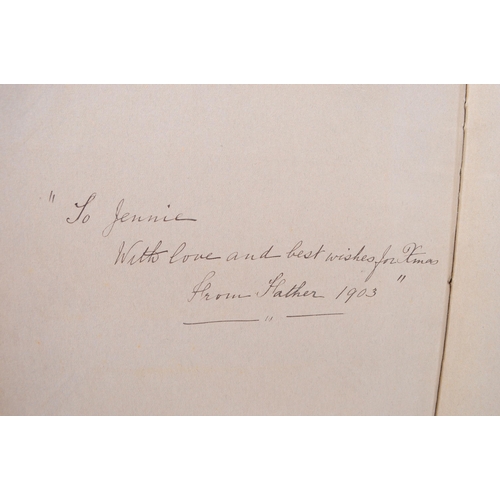 " To Jennie
With love and best wishes for Xmas
From Father 1903 "
"